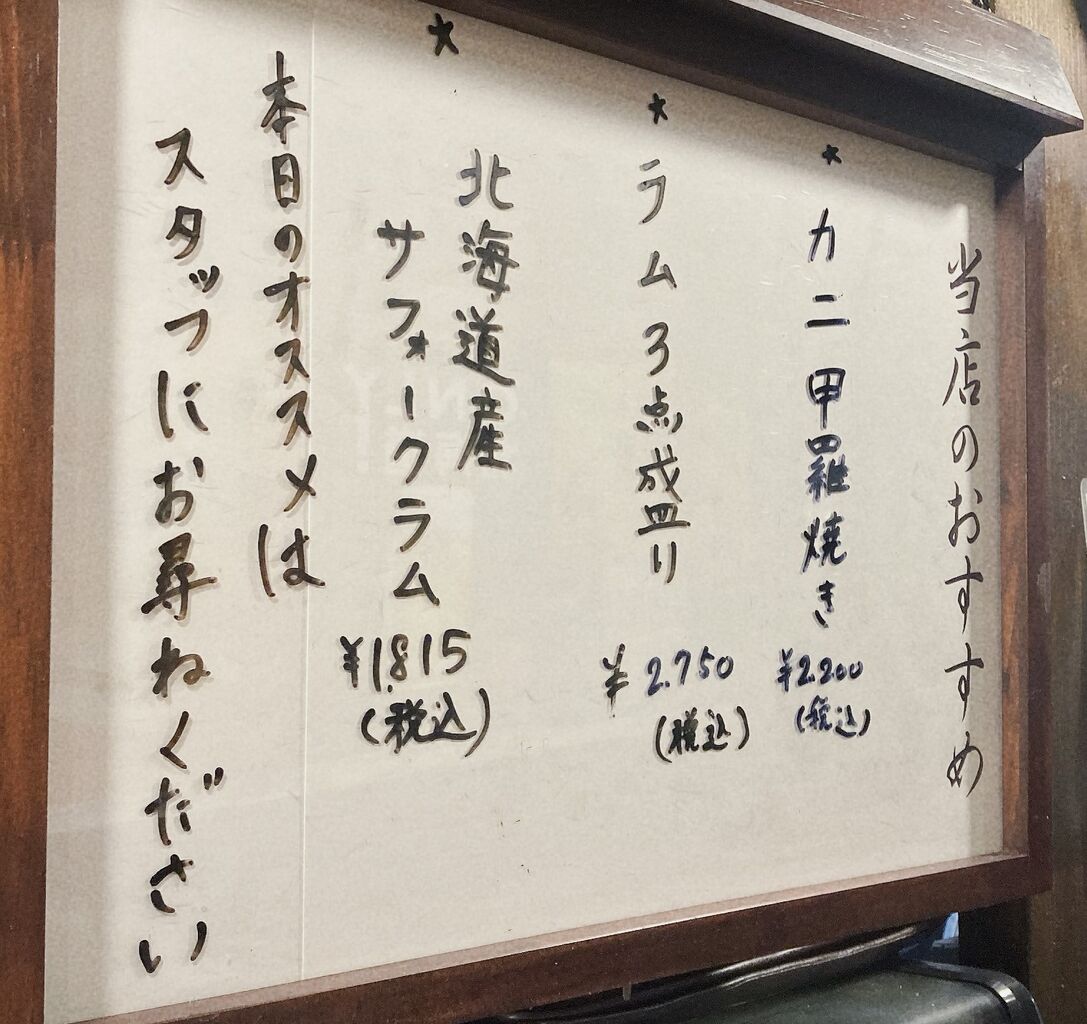 当店のおすすめ
★
カニ甲羅焼き
¥2.200
(税込)
★
ラム3点盛り
¥2.750
(税込)
★
北海道産
サフォークラム
¥1.815
(税込)
本日のオススメは
スタッフにお尋ねください